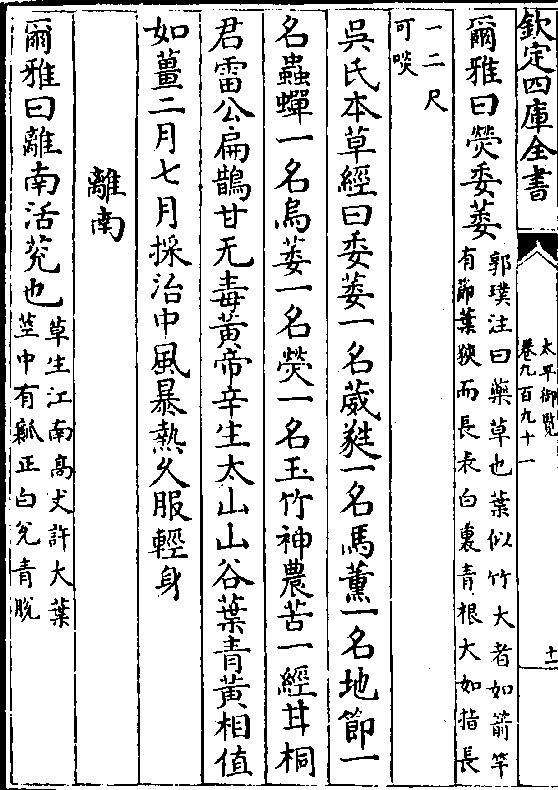 欽定四庫全書
太平御覽
卷九百九十一
十一
爾雅曰熒委萎
郭璞注曰藥草也葉似竹大者如箭竿
有節葉狹而長表白裏青根大如指長
一二尺
可啖
吳氏本草經曰委萎一名葳蕤一名馬薰一名地節一
名蟲蟬一名烏萎一名熒一名玉竹神農苦一經甘桐
君雷公扁鵲甘无毒黃帝辛生太山山谷葉青黃相值
如薑二月七月採治中風暴熱久服輕身
離南
爾雅曰離南活莌也
草生江南高丈許大葉
莖中有瓤正白兊青脫